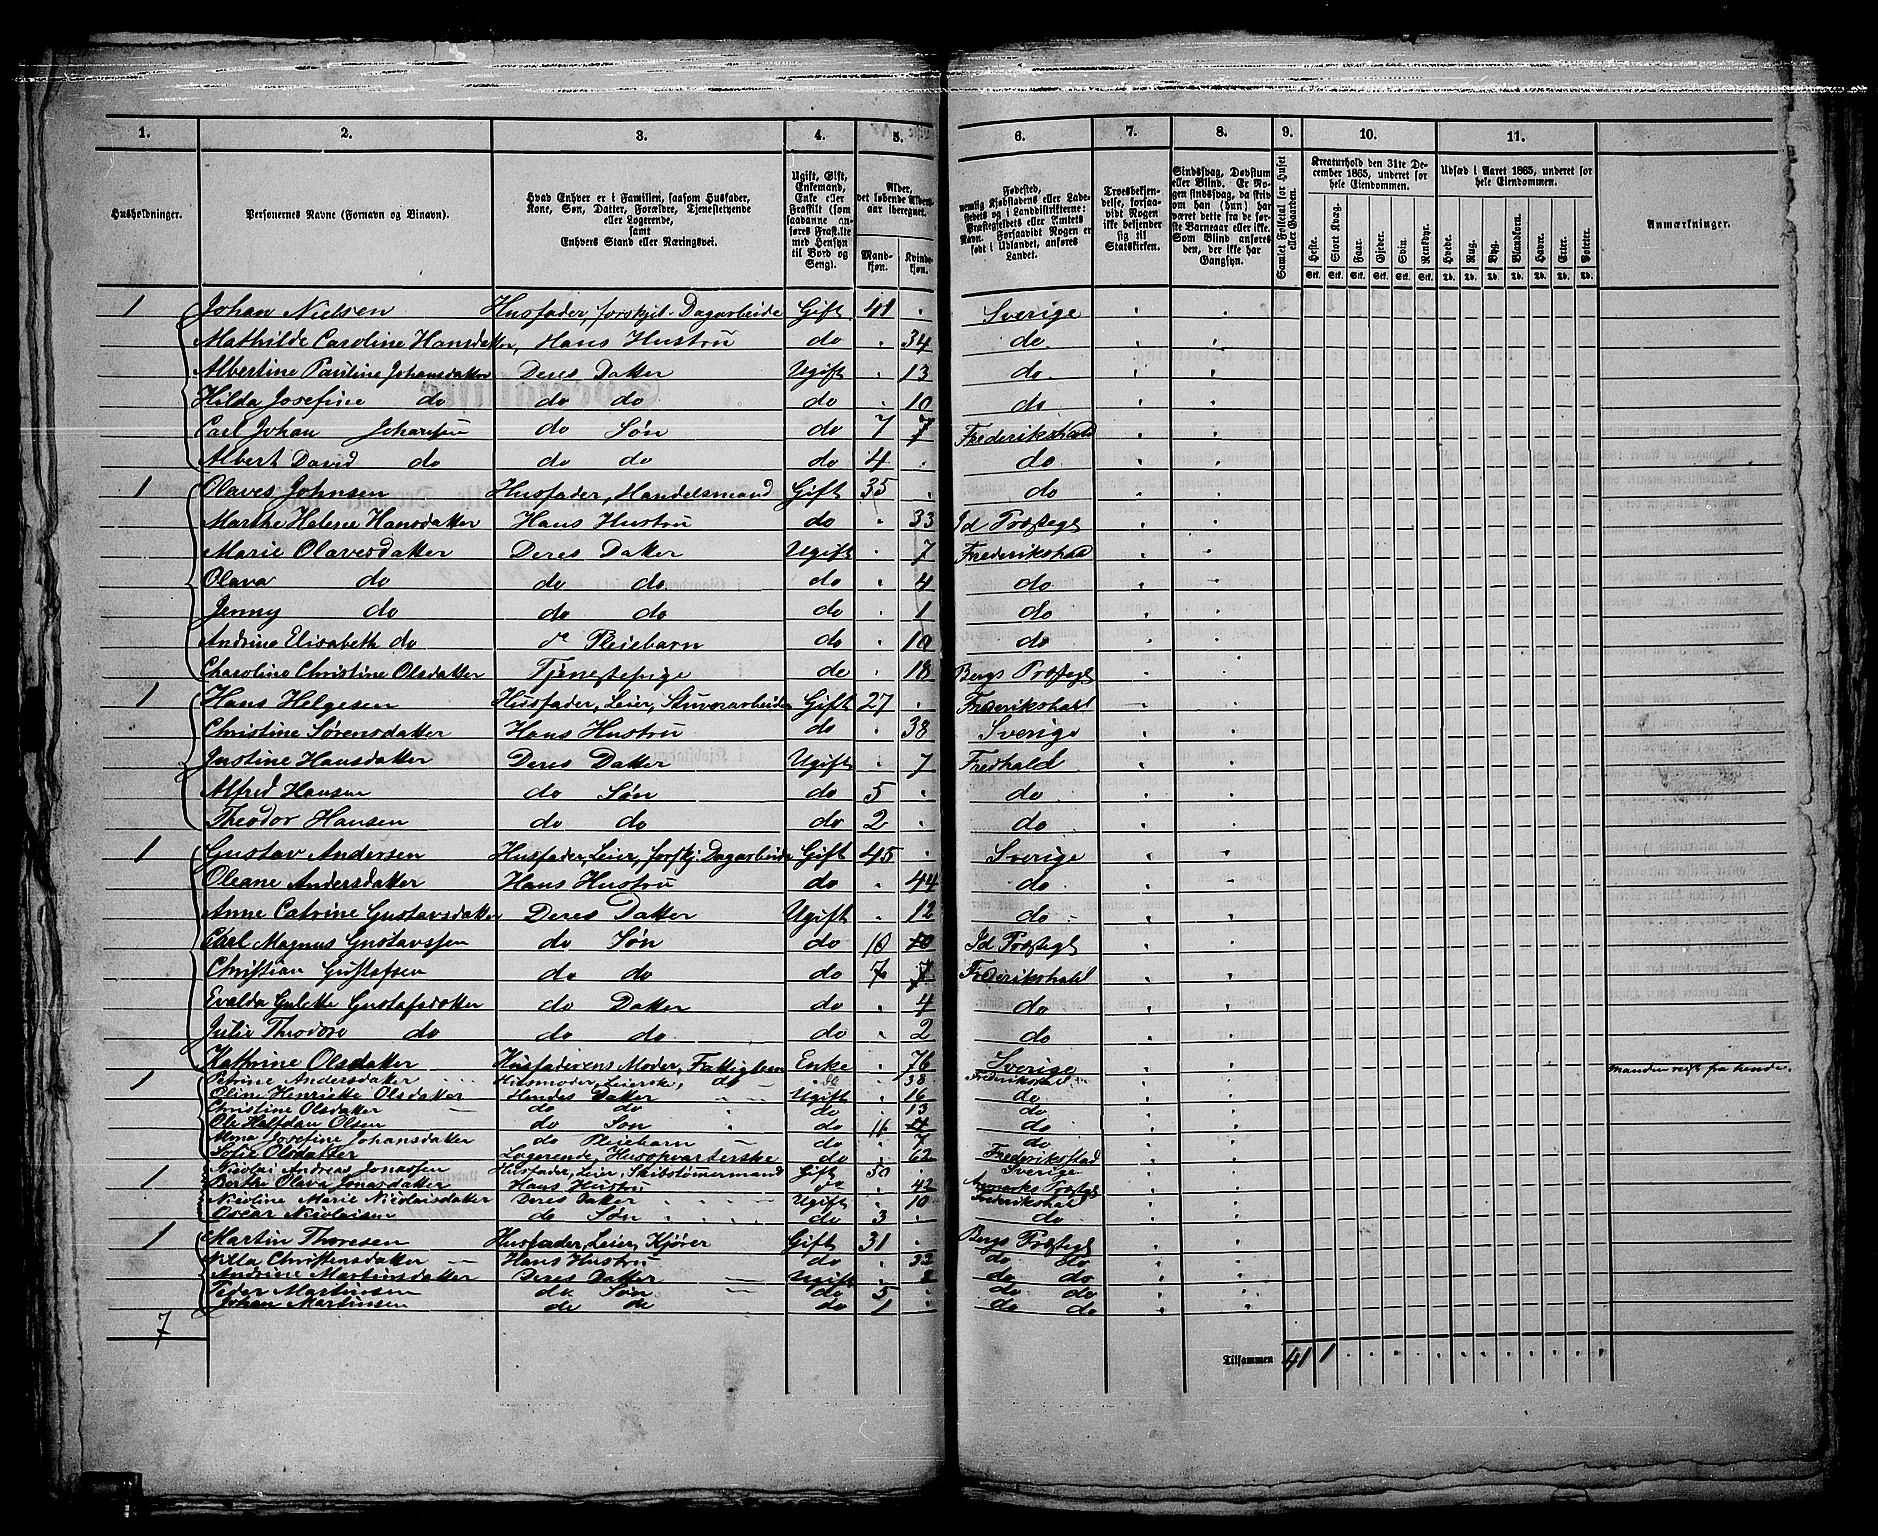 1. 2. 3. 4. 5. 6. 7. 8. 9. 10. 11.
Husholdninger.
Personernes Navne (Fornavn og Vinavn).
Hvad Enhver er i Familien, saasom Husfader, Kone, Søn, Datter, Forældre, Tjenestetyende eller Logerende, samt Enhvers Stand eller Næringsvei.
Ugift, Gift, Enkemand, Enke eller Fraskilt (som saadanne anføres Fraskilte med Hensyn til Bord og Seng).
Alder, det løbende Alders-aar iberegnet.
Mand-kjøn. Kvinde-kjøn.
Fødested, nemlig Kjøbstadens eller Ladestedets og i Landdistrikterne: Præstegjeldets eller Amtets Navn. Forsaavidt Nogen er født i Udlandet, anføres Landet.
Troesbekjendelse, forsaavidt Nogen ikke bekjender sig til Statskirken.
Sindssvag, Døvstum eller Blind. Er Nogen sindssvag, da skrives om han (hun) har været dette fra de første Barneaar eller ikke. Som Blind anføres den, der ikke har Gangsyn.
Samlet Folketal for Huset eller Gaarden.
Kreaturhold den 31te December 1865, underet for hele Eiendommen.
Heste. Stort Kvæg. Faar. Gjeder. Svin. Rensdyr.
Udsæd i Aaret 1865, underet for hele Eiendommen.
Hvede. Rug. Byg. Blandkorn. Havre. Erter. Poteter.
Anmærkninger.
Stk. Stk. Stk. Stk. Stk. Stk. Td. Td. Td. Td. Td. Td. Td.
1 Johan Nielsen Husfader, forskjel. Dagarbeide Gift 41 Sverige
Mathilde Caroline Hansdatter, Hans Hustru do 34 do
Albertine Pauline Johansdatter Deres Datter Ugift 13 do
Hilda Josefine do do do do 10 do
Carl Johan Johansen do Søn do 7 7 Frederikshald
Albert David do do do do 4 do
1 Olaves Johnsen Husfader, Handelsmand Gift 35 do
Marthe Helene Hansdatter Hans Hustru do 33 Id Præstegt
Marie Olavesdatter Deres Datter Ugift 7 Frederikshald
Olava do do do do 4 do
Jenny do do do do 1 do
Andrine Elisabeth do do Pleiebarn do 10 do
Charoline Christine Olsdatter Tjenestepige do 18 Bergs Præstegt
1 Hans Helgesen Husfader, Leier, Stuverarbeider Gift 27 Frederikshald
Christine Sørensdatter Hans Hustru do 38 Sverige
Justine Hansdatter Deres Datter Ugift 7 Fredhald
Alfred Hansen do Søn do 5 do
Theodor Hansen do do do 2 do
1 Gustav Andersen Husfader, Leier, forskj. Dagarbeide Gift 45 Sverige
Oleane Andersdatter Hans Hustru do 44 do
Anne Catrine Gustavsdatter Deres Datter Ugift 12 do
Carl Magnus Gustavssen do Søn do 10 10 Id Præstegt
Christian Gustafsen do do do 7 7 Frederikshald
Evalda Gulette Gustafsdatter do Datter do 4 do
Julie Theodore do do do do 2 do
Kathrine Olsdatter Husfaderens Moder, Fattiglem Enke 76 Sverige
1 Petrine Andersdatter Husmoder, Leierske, do do 38 Frederikshald manden reist fra hende.
Oline Henriette Olsdatter Hendes Datter Ugift 16 do
Christine Olsdatter do do do 13 do
Ole Halfdan Olsen do Søn do 11 do
Josefine Johansdatter do Pleiebarn do 7 do
Sofie Olsdatter Logerende, Husopvarterske do 62 Frederikstad
1 Nicolai Andreas Jonassen Husfader, Leier, Skibstømmermand Gift 50 Sverige
Berthe Olava Jonasdatter Hans Hustru do 42 Præstegt
Nicoline Marie Nicolaisdatter Deres Datter Ugift 10 Frederikshald
Oscar Nicolaisen do Søn do 3 do
1 Martin Thoresen Husfader, Leier, Kjører Gift 31 Bergs Præstegt
Christensdatter Hans Hustru do 32 do do
Andrine Martinsdatter Deres Datter Ugift 8 do do
Peder Martinsen do Søn do 5 do do
Johan Martinsen do do do 1 do do
7
Tilsammen 41 1